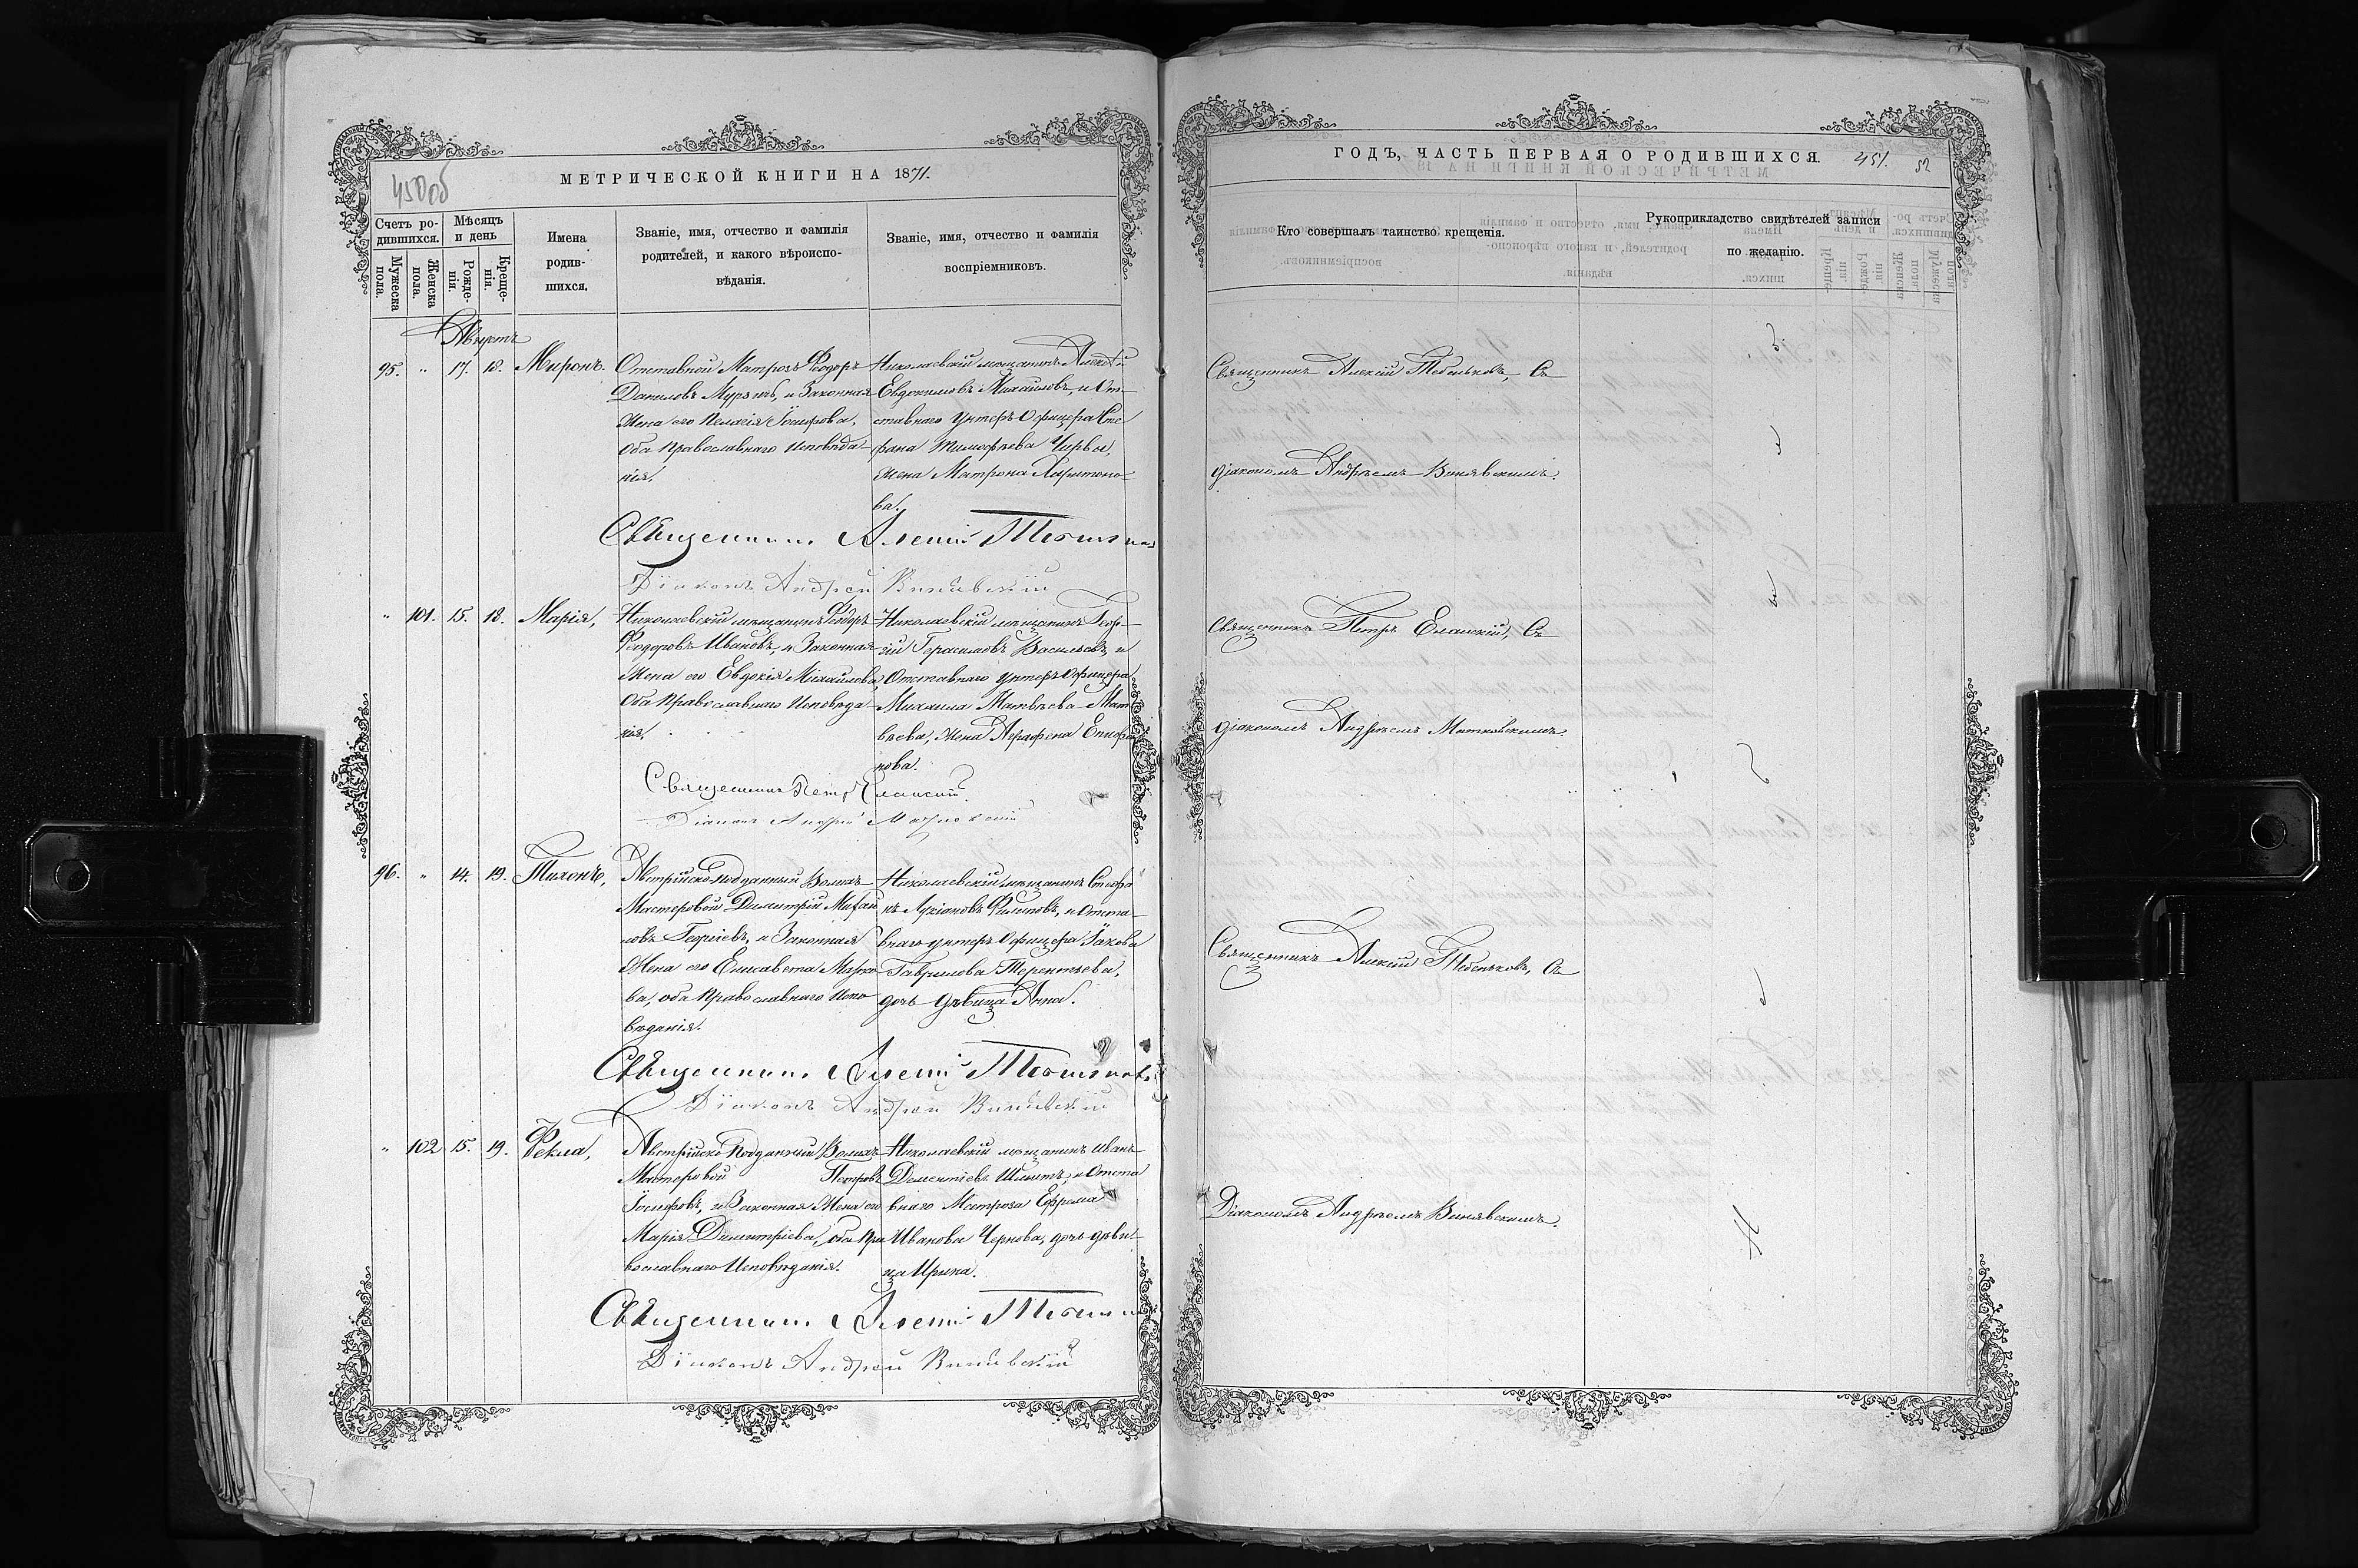 450об
МЕТРИЧЕСКОЙ КНИГИ НА 1871.
Счетъ ро-
дившихся.
Мужеска
пола.
Женска
пола.
Мѣсяцъ
и день
Рожде-
нія.
Креще-
нія.
Имена
родив-
шихся.
Званіе, имя, отчество и фамилія
родителей, и какого вѣроиспо-
вѣданія.
Званіе, имя, отчество и фамилія
воспріемниковъ.
Августъ
95. " 17. 18. Миронъ.
Отставной Матросъ Ѳеодоръ
Даниловъ и Законная
Жена его Пелагія Іосифова,
Оба Православнаго Исповѣда-
нія.
Николаевскій мѣщанинъ Алексѣй
Евдокимовъ Михайловъ, и От-
ставнаго Унтеръ Офицера Сте
фана Тимофѣева
Жена Матрона Харитоно-
ва.
Священникъ Алексій
Діаконъ Андрей Винявскій
" 101. 15. 18. Марія,
Николаевскій мѣщанинъ Ѳеодоръ
Ѳеодоровъ Ивановъ, и Законная
Жена его Евдокія Михайлова,
Оба Православнаго Исповѣда-
нія.
Николаевскій мѣщанинъ Геор-
гій Герасимовъ Васильевъ, и
Отставнаго Унтеръ Офицера
Михаила Матвѣева Мат
вѣева, Жена Аграфена Епифа
нова.
Священникъ Петръ Еланскій.
Діаконъ Андрей Матковскій
96. " 14. 19. Тихонъ,
Австрійско-подданный Волахъ
Мастеровой Димитрій Михай
ловъ Георгіевъ, и Законная
Жена его Елисавета Марко
ва, оба Православнаго Испо
вѣданія.
Николаевскій мѣщанинъ Стефа
нъ Лукіановъ Филиповъ, и Отста-
внаго Унтеръ Офицера Іакова
Гаврилова Терентьева,
дочь дѣвица Анна.
Священникъ Алексій
Діаконъ Андрей Винявскій
" 102 15. 19. Ѳекла,
Австрійско-Подданный Волахъ
Мастеровой Петръ
Іосифовъ, и Законная Жена его
Марія Димитріева, оба Пра
вославнаго Исповѣданія.
Николаевскій мѣщанинъ Иванъ
Дементіевъ и Отста
внаго Матроса Ефрема
Иванова Чернова, дочь дѣви-
ца Ирина.
Священникъ Алексій
Діаконъ Андрей Винявскій
ГОДЪ, ЧАСТЬ ПЕРВАЯ О РОДИВШИХСЯ. 451. 52
Кто совершалъ таинство крещенія.
Рукоприкладство свидѣтелей записи
по желанію.
Священникъ Алексій Тебеньковъ, Съ
діакономъ Андреемъ Винявскимъ.
Священникъ Петръ Еланскій, Съ
діакономъ Андреемъ Матковскимъ.
Священникъ Алексій Тебеньковъ, Съ
Діакономъ Андреемъ Винявскимъ.